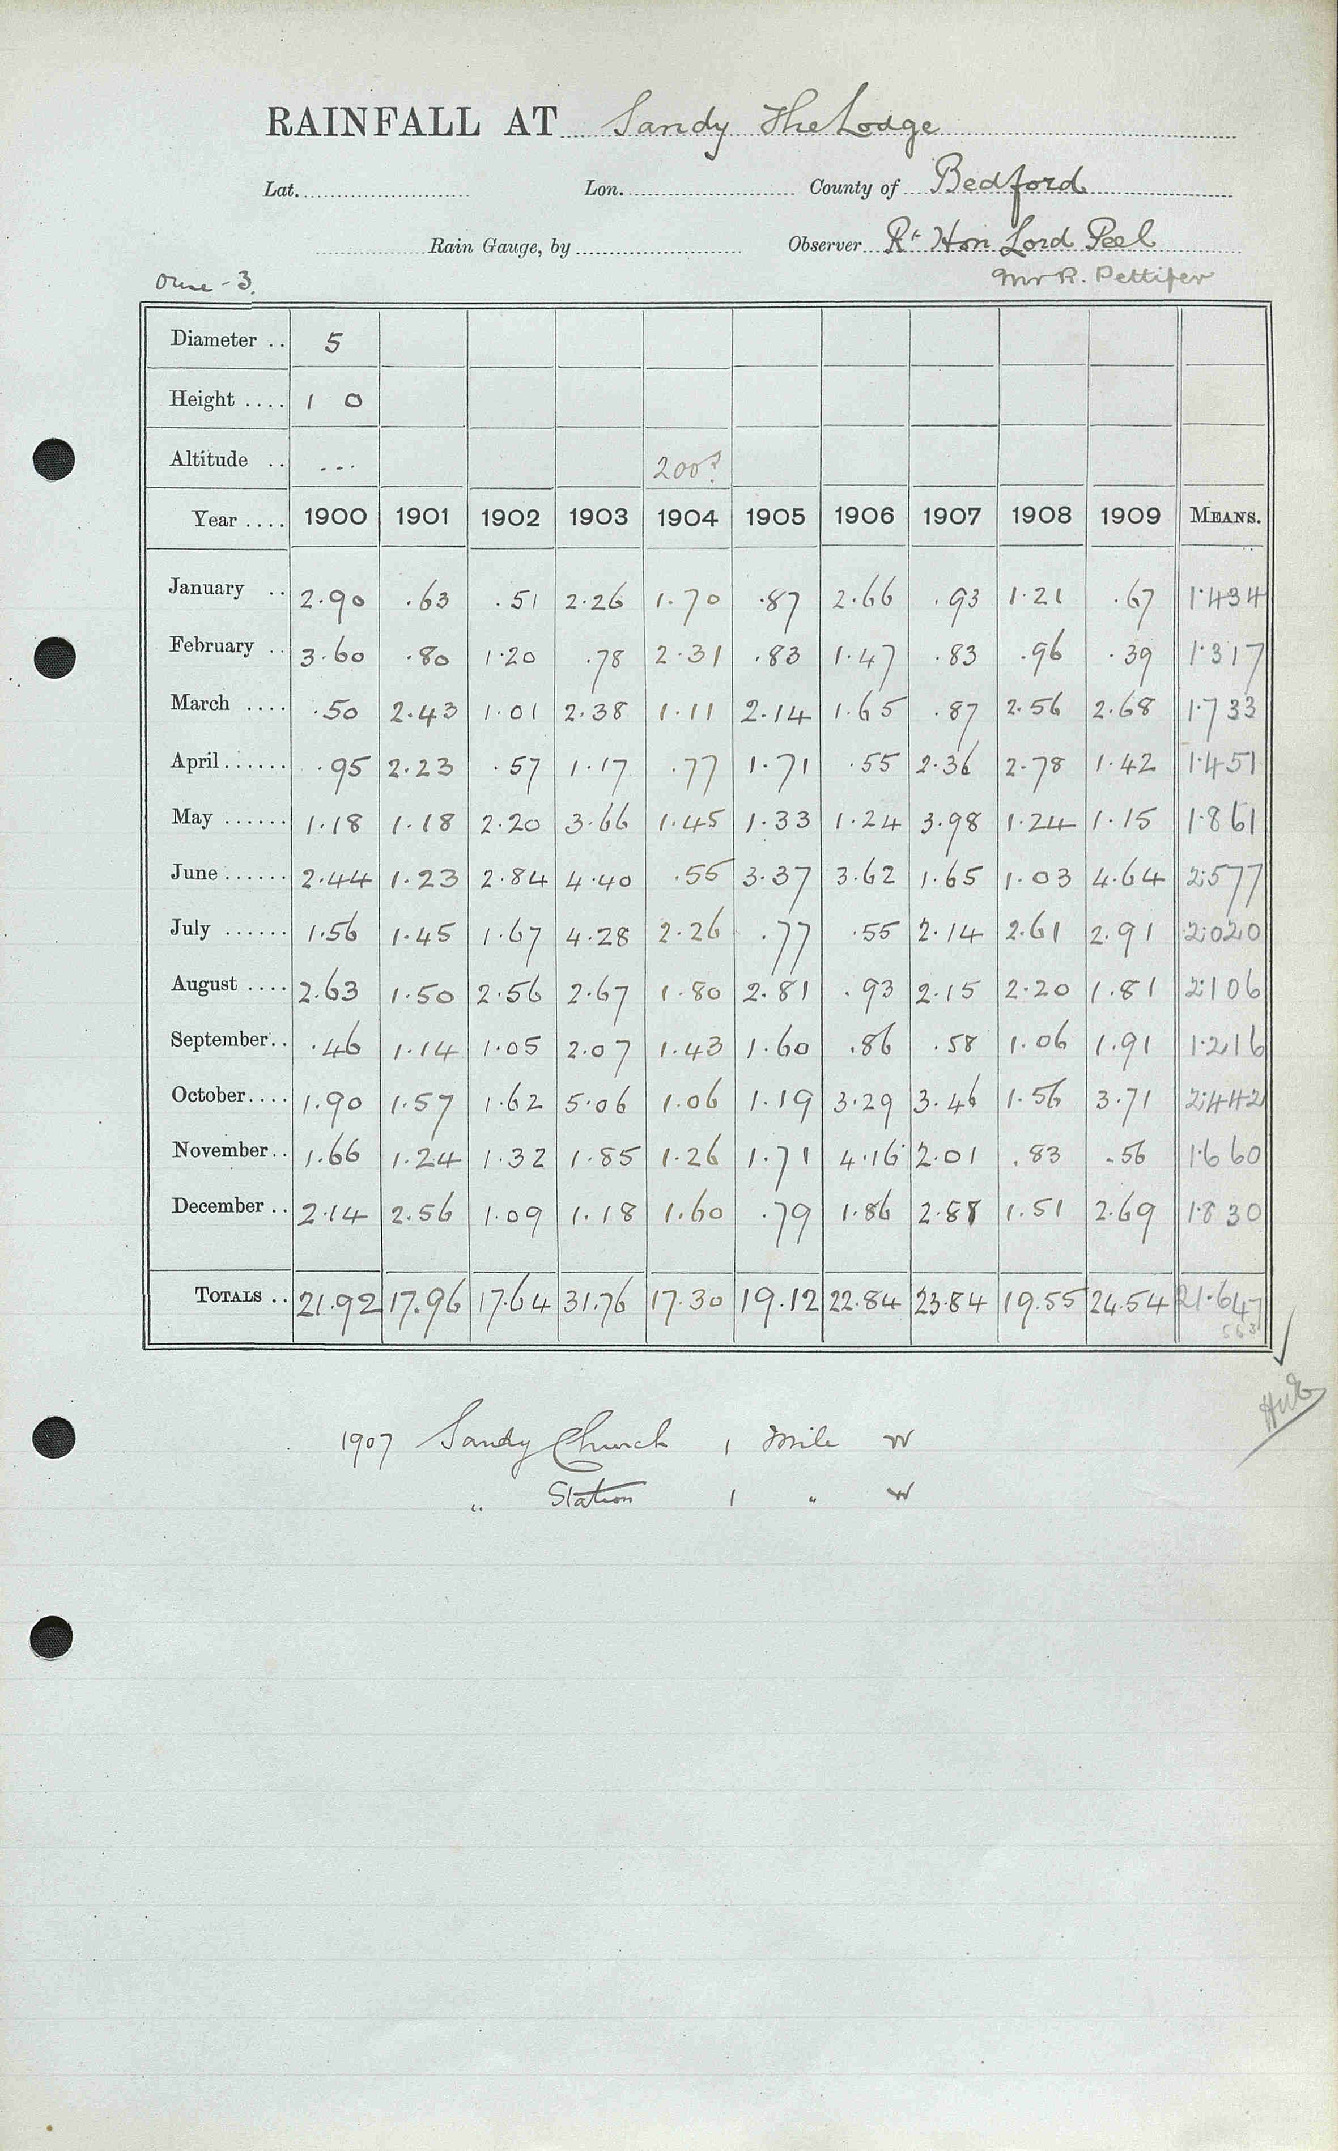 RAINFALL AT Sandy The Lodge
Lat. Lon. County of Bedford
Rain Gauge, by Observer Rt Hon Lord Peel
Ouse - 3. Mr R. Pettifer
Diameter .. 5
Height .... 1 0
Altitude .. ... 200?
Year .... 1900 1901 1902 1903 1904 1905 1906 1907 1908 1909 MEANS.
January .. 2.90 .63 .51 2.26 1.70 .87 2.66 .93 1.21 .67 1.434
February .. 3.60 .80 1.20 .78 2.31 .83 1.47 .83 .96 .39 1.317
March .... .50 2.43 1.01 2.38 1.11 2.14 1.65 .87 2.56 2.68 1.733
April ...... .95 2.23 .57 1.17 .77 1.71 .55 2.36 2.78 1.42 1.451
May ...... 1.18 1.18 2.20 3.66 1.45 1.33 1.24 3.98 1.24 1.15 1.861
June ...... 2.44 1.23 2.84 4.40 .55 3.37 3.62 1.65 1.03 4.64 2.577
July ...... 1.56 1.45 1.67 4.28 2.26 .77 .55 2.14 2.61 2.91 2.020
August .... 2.63 1.50 2.56 2.67 1.80 2.81 .93 2.15 2.20 1.81 2.106
September .. .46 1.14 1.05 2.07 1.43 1.60 .86 .58 1.06 1.91 1.216
October .... 1.90 1.57 1.62 5.06 1.06 1.19 3.29 3.46 1.56 3.71 2.442
November .. 1.66 1.24 1.32 1.85 1.26 1.71 4.16 2.01 .83 .56 1.660
December .. 2.14 2.56 1.09 1.18 1.60 .79 1.86 2.88 1.51 2.69 1.830
TOTALS .. 21.92 17.96 17.64 31.76 17.30 19.12 22.84 23.84 19.55 24.54 21.647
563
1907 Sandy Church 1 Mile W
" Station 1 " W